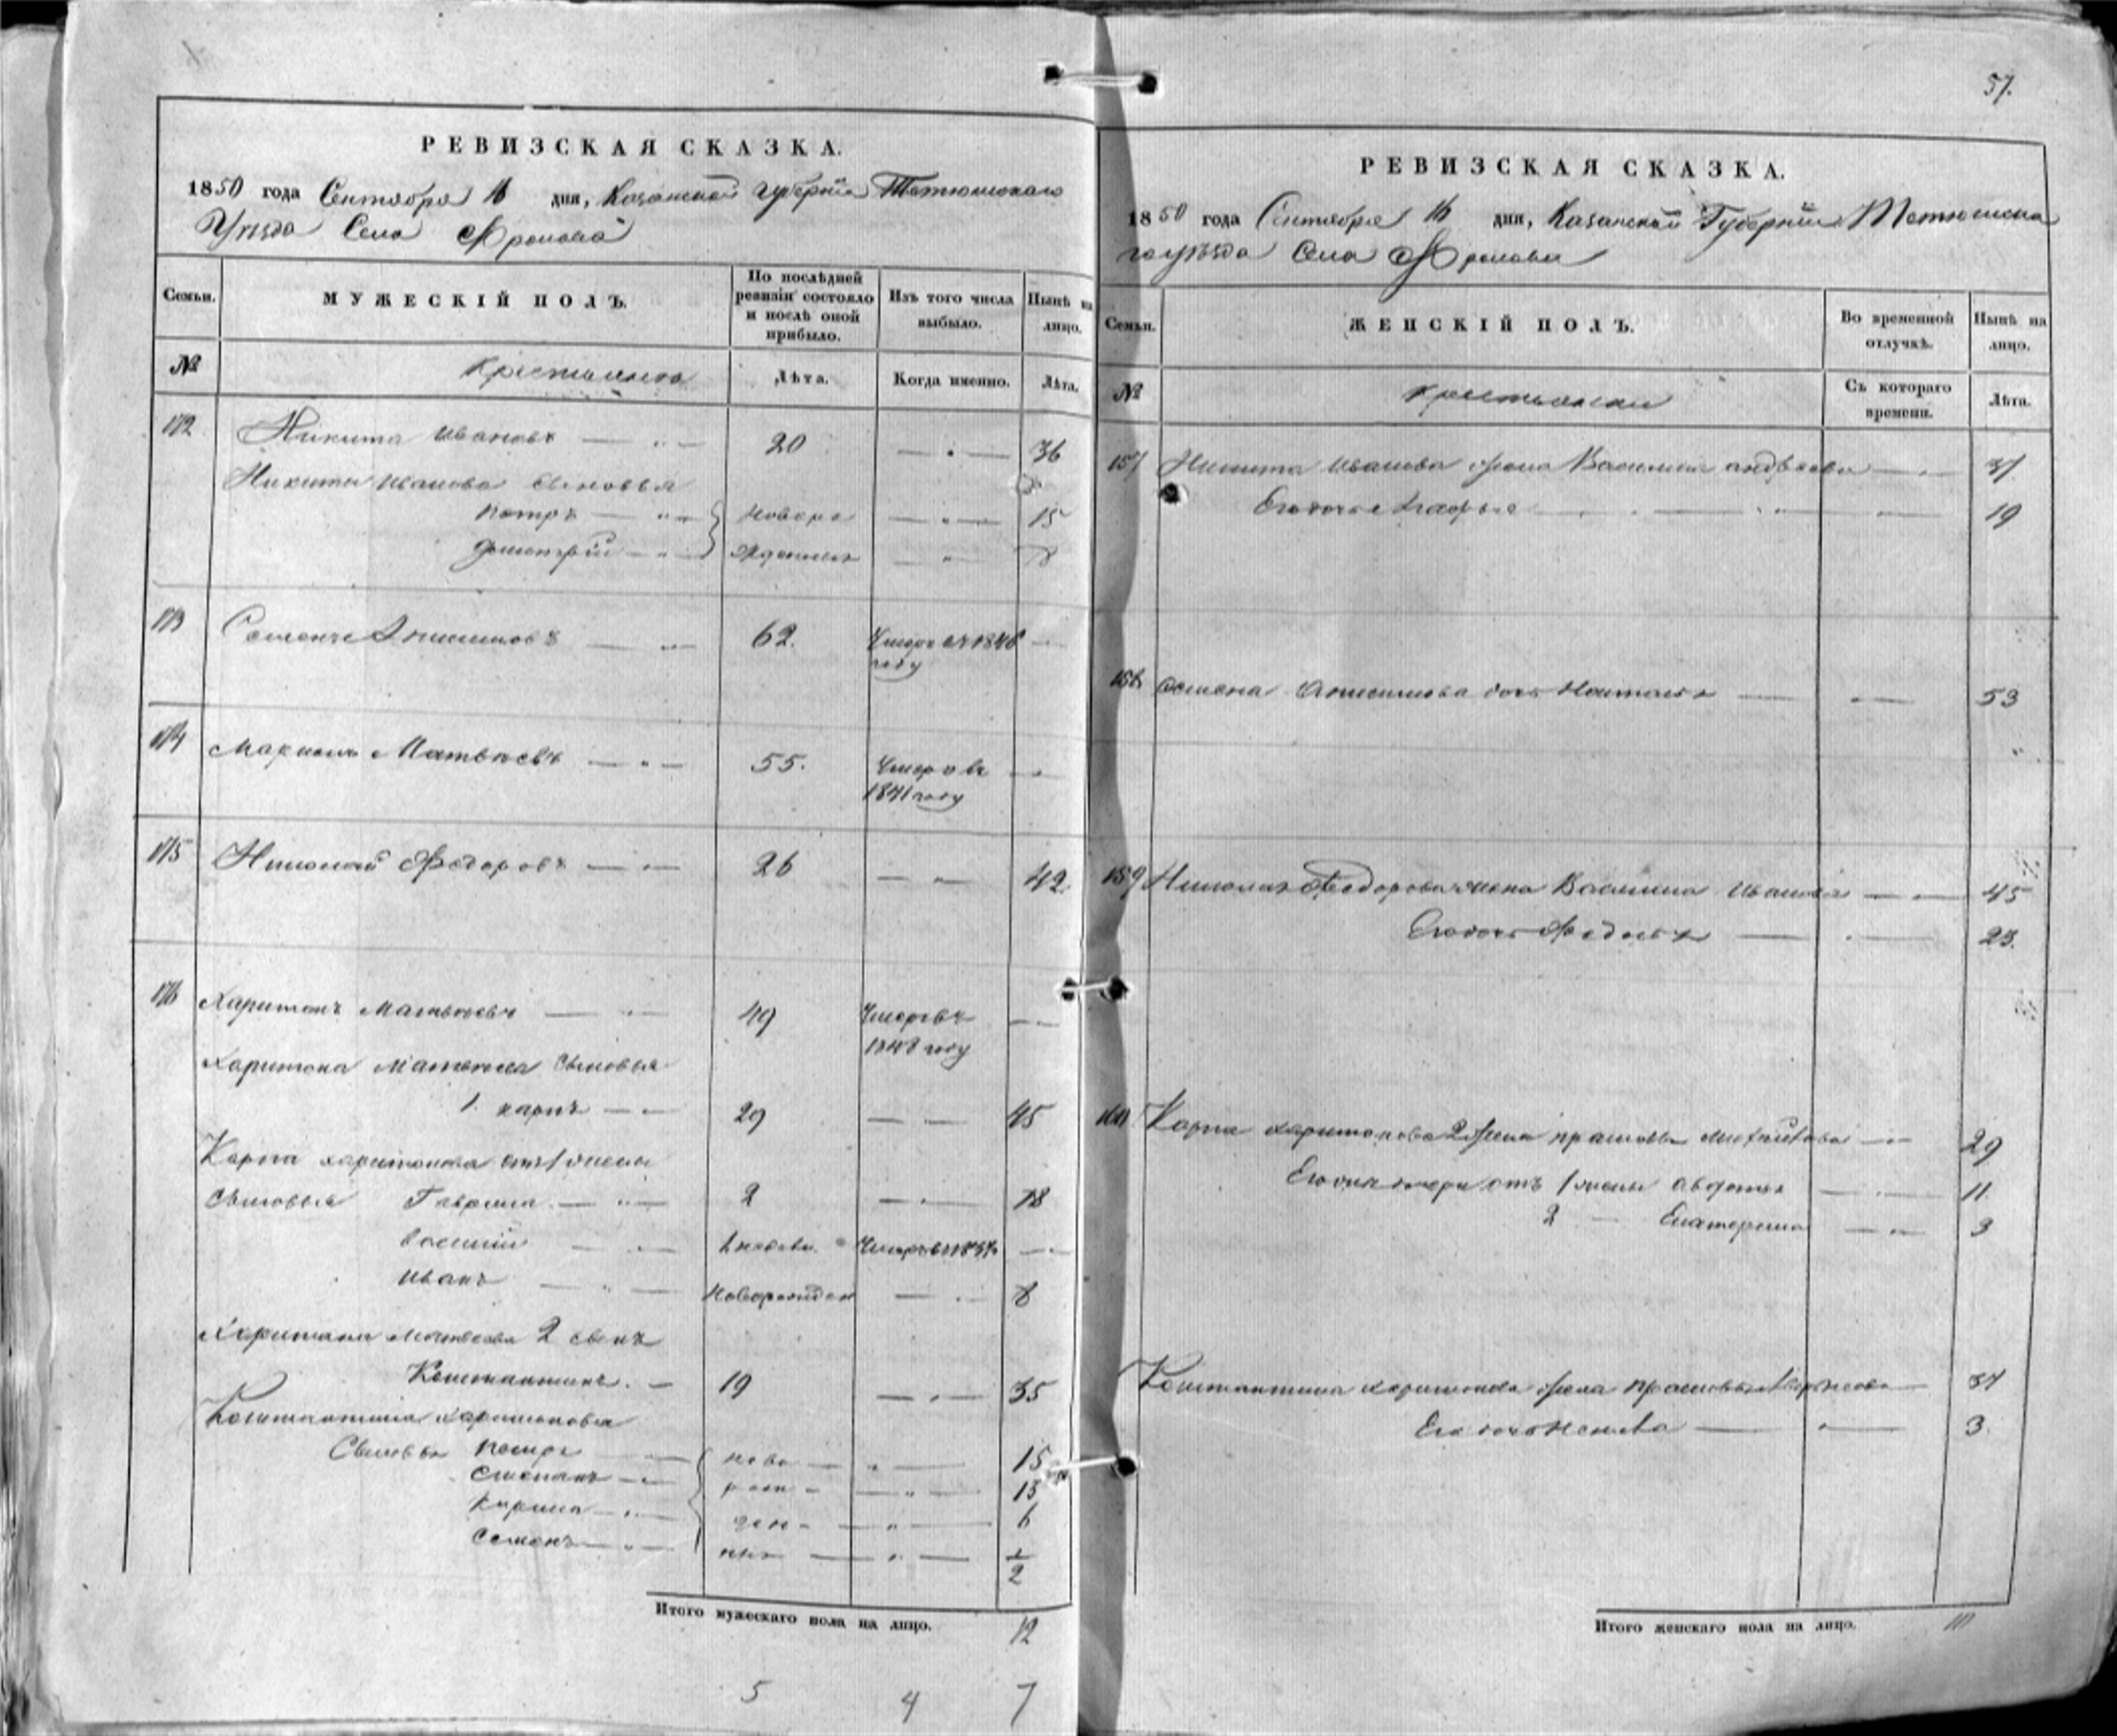 РЕВИЗСКАЯ СКАЗКА.
1850 года Сентября 16 дня, Казанской губернiи Тетюшскаго
Уѣзда Села Фролова
Семьи.
МУЖЕСКІЙ ПОЛЪ.
По послѣдней ревизіи состояло и послѣ оной прибыло.
Изъ того числа выбыло.
Нынѣ на лицо.
№
Крестьянъ
Лѣта.
Когда именно.
Лѣта.
172 Никита Ивановъ 20 36
Никиты Иванова сыновья
Петръ новоро 15
Дмитрій жденныхъ 8
173 Семенъ Анисимовъ 62. Умеръ въ 1846 году
174 Матвѣевъ 55. Умеръ въ
1841 году
175 Николай Федоровъ 26 42.
176 Харитонъ Матвѣевъ 49 Умеръ въ
1848 году
Харитона Матвѣева сыновья
1. Карпъ 29 45
Карпа Харитонова отъ 1 жены
сыновья Гаврила 2 18
Василій Умеръ въ
Иванъ новорожден 8
Харитона Матвѣева 2 сынъ
Константинъ. 19 35
Константина Харитонова
Сыновья Петръ ново 15
Степанъ рож 13
Кирила ден 6
Семенъ ные 1/2
Итого мужескаго пола на лицо. 12
5 4 7
57.
РЕВИЗСКАЯ СКАЗКА.
1850 года Сентября 16 дня, Казанской Губернiи Тетюшска
го уѣзда Села Фролова
Семьи.
ЖЕНСКІЙ ПОЛЪ.
Во временной отлучкѣ.
Нынѣ на лицо.
№
крестьянки
Съ котораго времени.
Лѣта.
157 Никиты Иванова жена Василиса Андреева 37.
Его дочь 19
158 Семена Анисимова дочь Наталья 53
159 Николая Федорова жена Василиса Иванова 45
Его дочь Федосья 23.
160 Карпа Харитонова 2 жена Прасковья 29
Его дочери отъ 1 жены Авдотья 11.
2 Екатерина 3
Константина Харитонова жена Прасковья 37
Его дочь 3.
Итого женскаго пола на лицо. 10